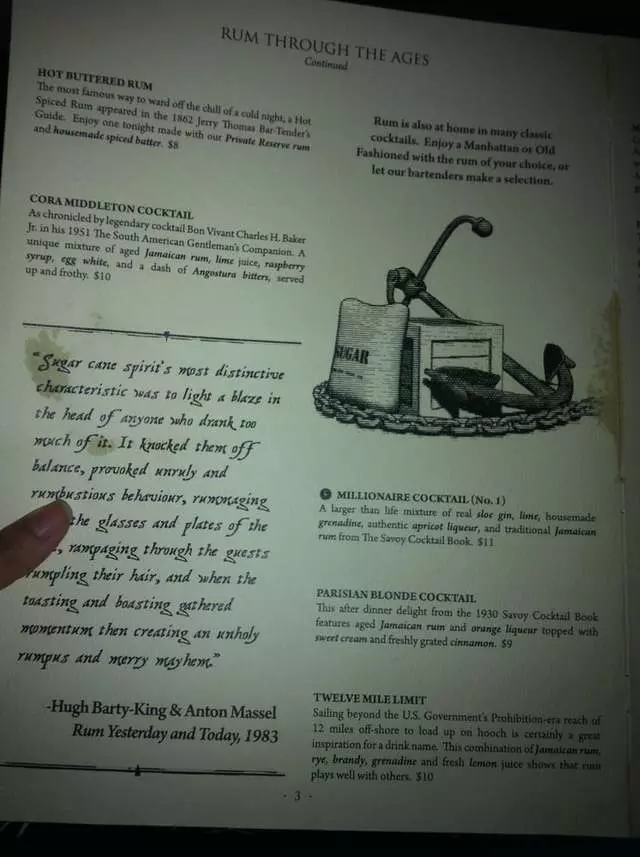 RUM THROUGH THE AGES
Continued
HOT BUTTERED RUM
The most famous way to ward off the chill of a cold night, a Hot
Spiced Rum appeared in the 1862 Jerry Thomas Bar-Tender's
Guide. Enjoy one tonight made with our Private Reserve rum
and housemade spiced batter. $8
CORA MIDDLETON COCKTAIL
As chronicled by legendary cocktail Bon Vivant Charles H. Baker
Jr. in his 1951 The South American Gentleman's Companion. A
unique mixture of aged Jamaican rum, lime juice, raspberry
syrup, egg white, and a dash of Angostura bitters, served
up and frothy. $10
"Sugar cane spirit's most distinctive
characteristic was to light a blaze in
the head of anyone who drank too
much of it. It knocked them off
balance, provoked unruly and
rumbustious behaviour, rummaging
the glasses and plates of the
, rampaging through the guests
rumpling their hair, and when the
toasting and boasting gathered
momentum then creating an unholy
rumpus and merry mayhem."
-Hugh Barty-King & Anton Massel
Rum Yesterday and Today, 1983
Rum is also at home in many classic
cocktails. Enjoy a Manhattan or Old
Fashioned with the rum of your choice, or
let our bartenders make a selection.
SUGAR
MILLIONAIRE COCKTAIL (No. 1)
A larger than life mixture of real sloe gin, lime, housemade
grenadine, authentic apricot liqueur, and traditional Jamaican
rum from The Savoy Cocktail Book. $11
PARISIAN BLONDE COCKTAIL
This after dinner delight from the 1930 Savoy Cocktail Book
features aged Jamaican rum and orange liqueur topped with
sweet cream and freshly grated cinnamon. $9
TWELVE MILE LIMIT
Sailing beyond the U.S. Government's Prohibition-era reach of
12 miles off-shore to load up on hooch is certainly a great
inspiration for a drink name. This combination of Jamaican rum,
rye, brandy, grenadine and fresh lemon juice shows that rum
plays well with others. $10
- 3 -